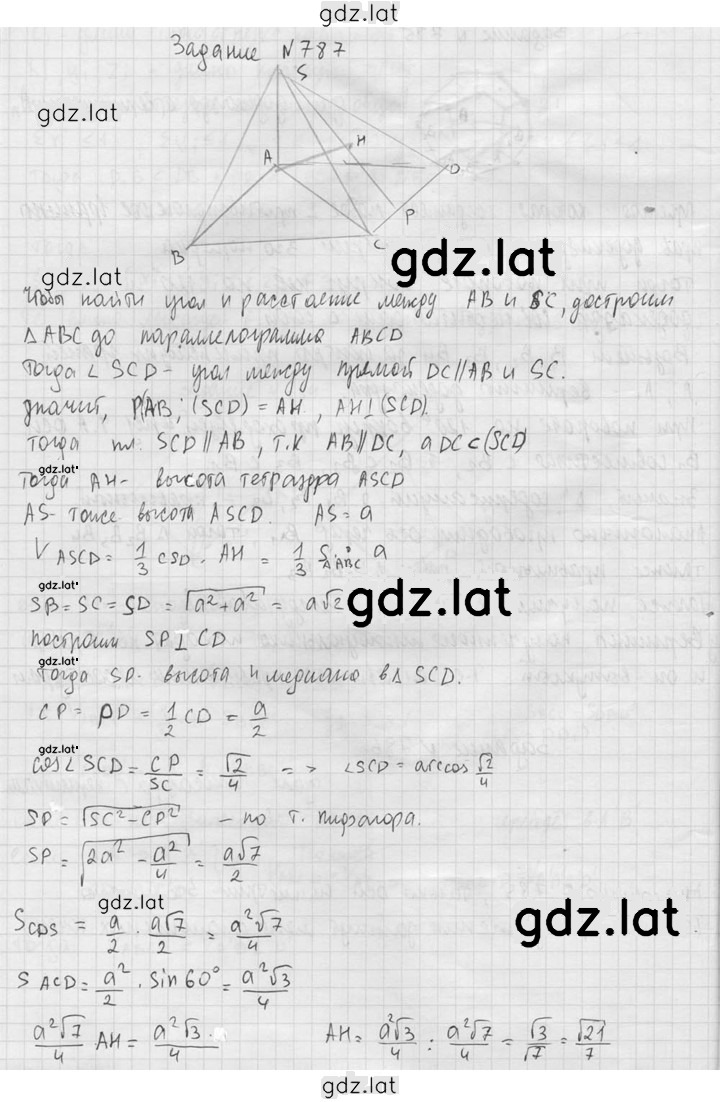 gdz.lat
Задание №787
gdz.lat
S
A
H
D
P
B
C
gdz.lat
gdz.lat
Чтобы найти угол и расстояние между AB и SC, достроим
△ABC до параллелограмма ABCD
Тогда ∠SCD - угол между прямой DC∥AB и SC.
значит, P(AB; (SCD) = AH, AH⊥(SCD).
тогда пл. SCD∥AB, т.к AB∥DC, а DC⊂(SCD)
gdz.lat
Тогда AH - высота тетраэдра ASCD
AS - тоже высота ASCD. AS = a
V ASCD = 1/3 CSD · AH = 1/3 S△ABC · a
gdz.lat
gdz.lat
SB = SC = SD = √(a² + a²) = a√2
построим SP⊥CD
gdz.lat
Тогда SP - высота и медиана в △SCD.
CP = PD = 1/2 CD = a/2
gdz.lat
cos∠SCD = CP/SC = √2/4 => ∠SCD = arccos √2/4
SP = √(SC² - CP²) - по т. Пифагора.
SP = √(2a² - a²/4) = a√7/2
gdz.lat
gdz.lat
S CDS = a/2 · a√7/2 = a²√7/4
S ACD = a²/2 · sin 60° = a²√3/4
a²√7/4 AH = a²√3/4 · AH = a²√3/4 : a²√7/4 = √3/√7 = √21/7
gdz.lat